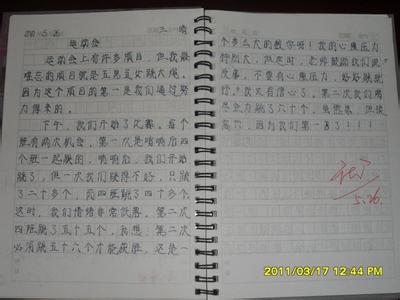 5.26 三、晴
运动会
运动会上有许多项目，但我最
难忘的项目就是五男五女跳大绳。
因为这个项目的第一是我们通过努
力得来的。
下午，我们开始了比赛。每个
班有两次机会，第一次是哨响后四
个班一起跳的，哨响后，我们开始
跳了，但一次我们跳得不好，只跳
了二十多个，而四班跳了四十多个。
这时，我们情绪非常低落。第二次
四班跳了五十五个，我想：第二次
必须跳五十六个才能获胜，这是一
个多么大的数字啊！我的心里压力
特别大，但这时，老师鼓励我们说
没事，不要有心里压力，好好跳就
行，我又有信心了。第二次我们竭
尽全力跳了六十个，虽然累，但很
高兴，因为我们第一名了！！！！
5.26.
2011/03/17 12:44 PM